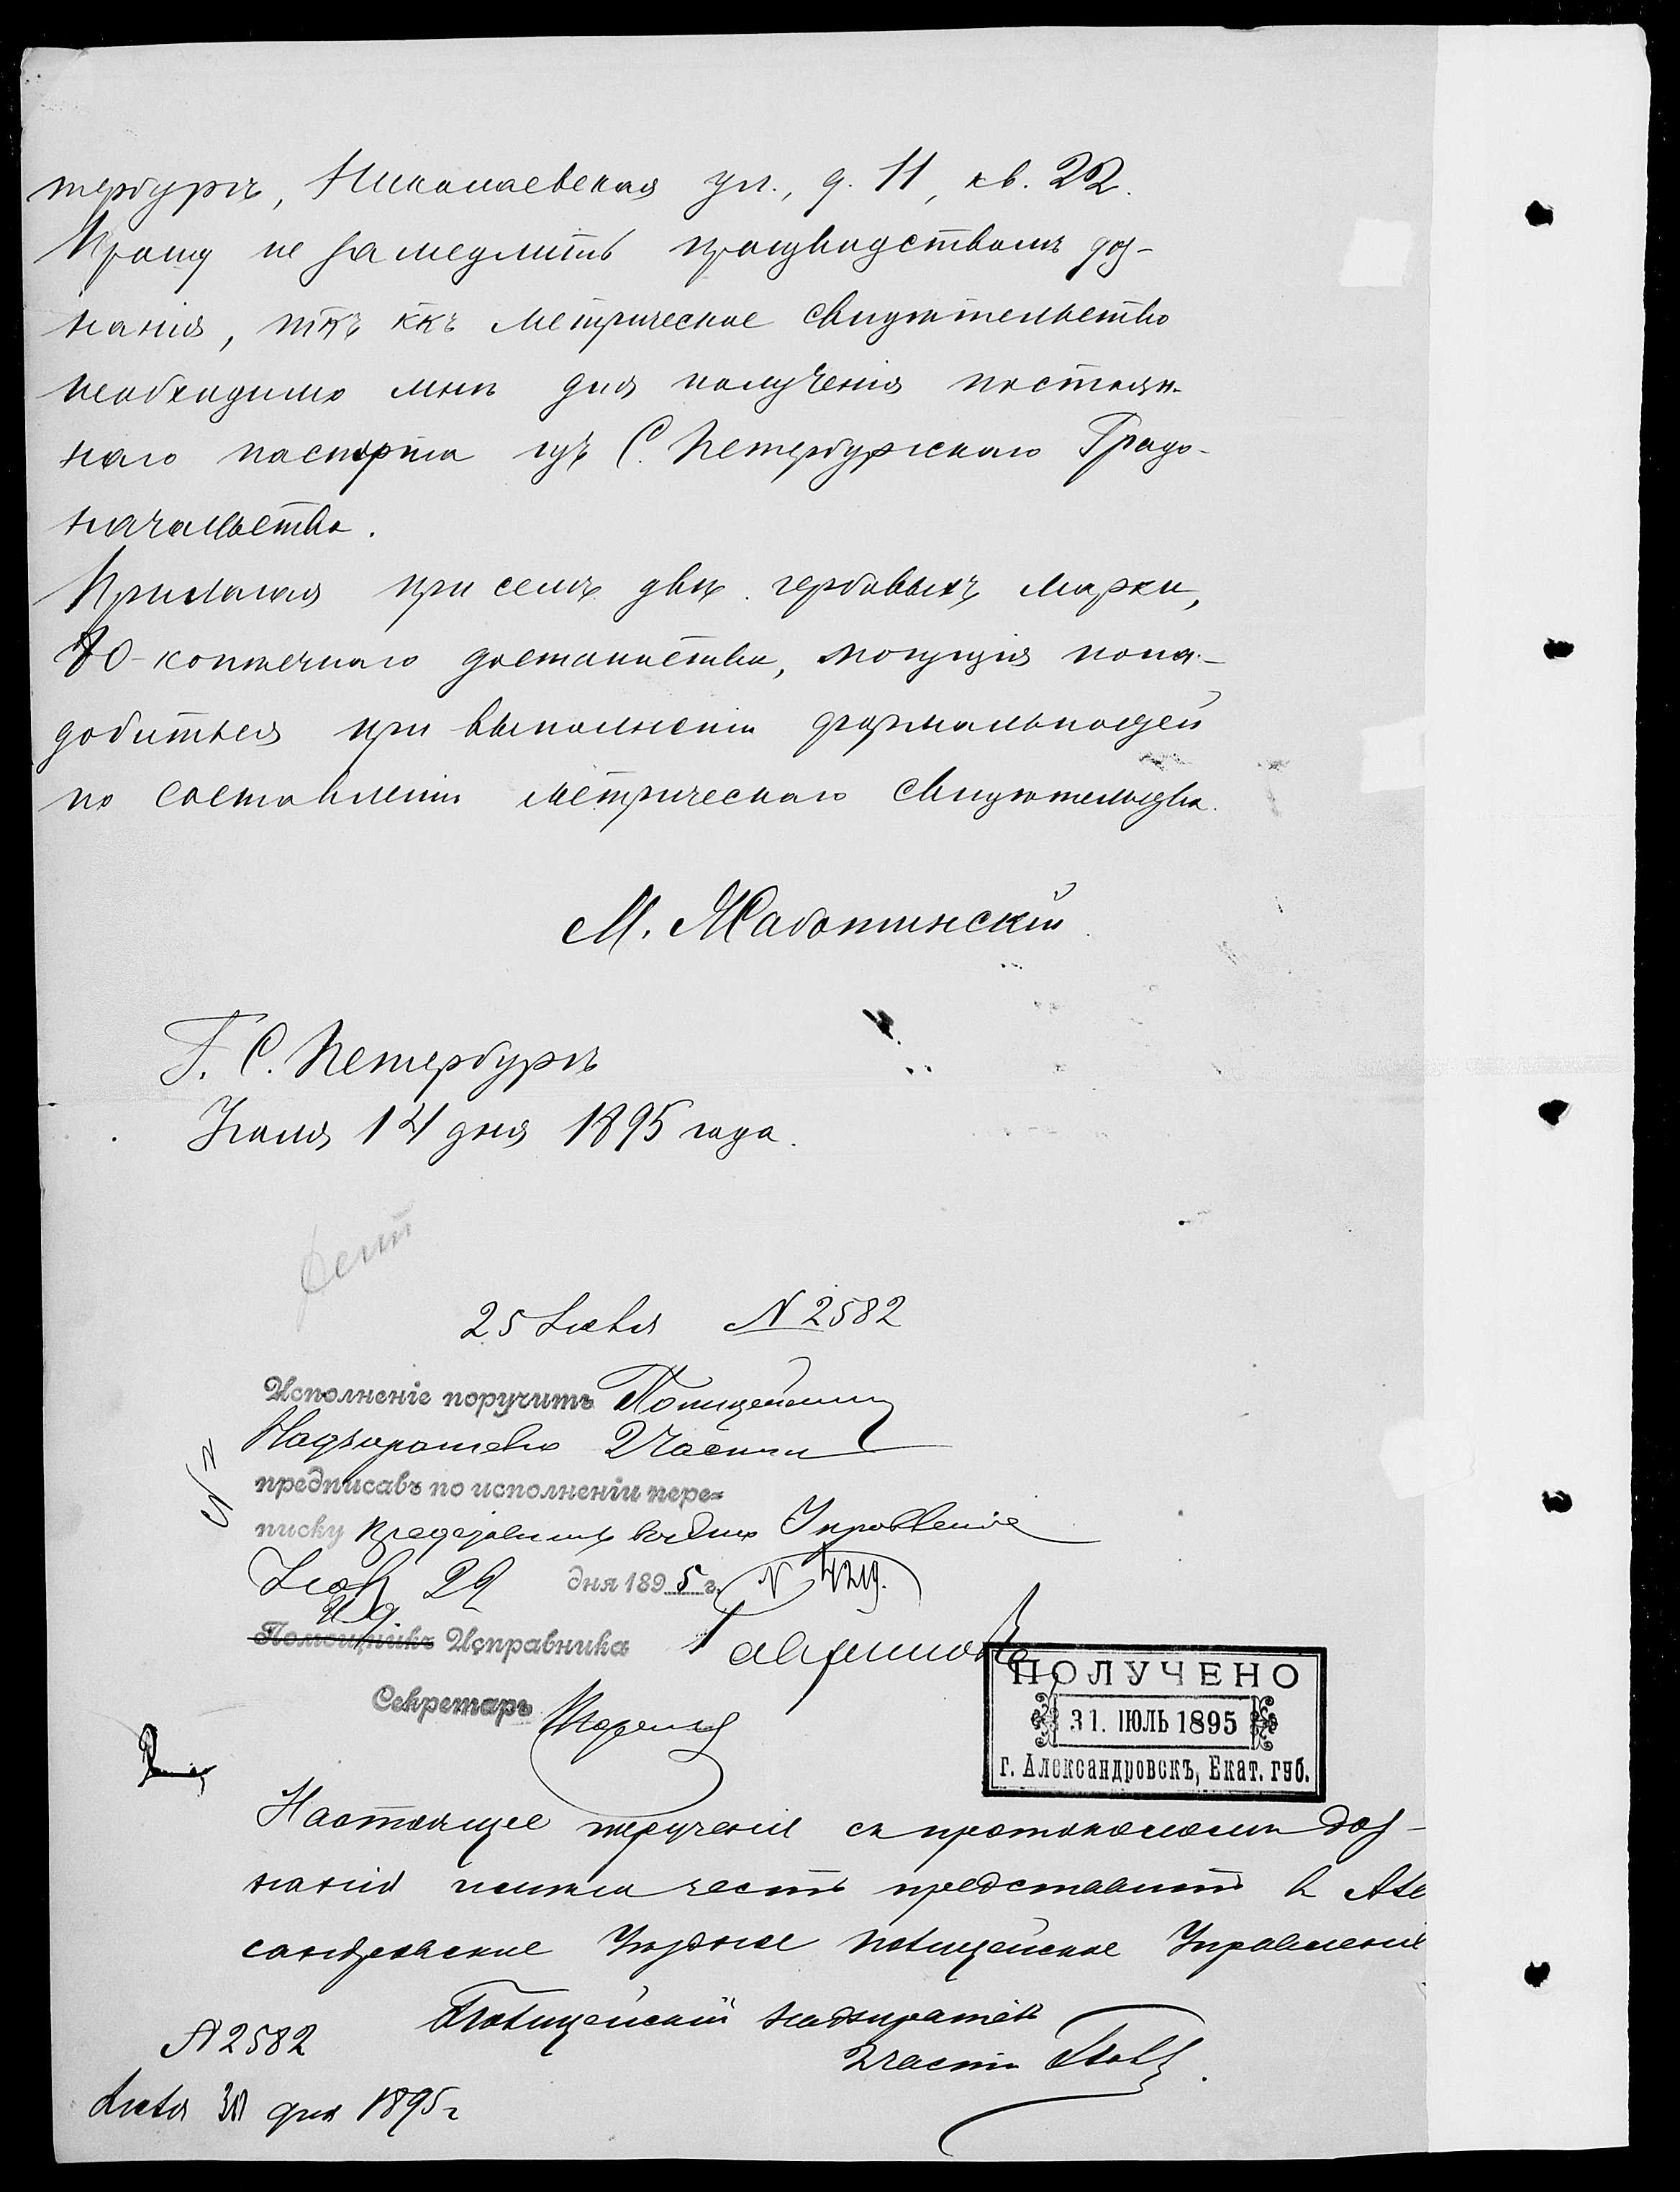 тербургъ, Николаевская ул., д. 11, кв. 22.
Прошу не замедлить производствомъ доз-
нанія, ткъ ккъ метрическое свидѣтельство
необходимо мнѣ для полученія постоян-
наго паспорта изъ С. Петербургскаго Градо-
начальства.
Прилагая при семъ двѣ гербовыхъ марки,
80-копѣечнаго достоинства, могущія пона-
добиться при выполненіи формальностей
по составленію метрическаго свидѣтельства.
М. Жаботинскій
Г. С. Петербургъ
Іюля 14 дня 1895 года.
25 Іюля N 2582
Исполненіе поручить Полицейскому
Надзирателю 2 Части
предписавъ по исполненіи пере-
писку Управленіе
Іюля 29 дня 1895 г. N 4219.
И д.
Помощникъ Исправника Гавришовъ
Секретарь
ПОЛУЧЕНО
31. ІЮЛЬ 1895
г. Александровскъ, Екат. губ.
Настоящее порученіе съ протоколомъ доз-
нанія имѣю честь представить въ Але
сандровское Уѣздное Полицейское Управленіе
Полицейскій надзиратель
2 части
N 2582
Іюля 30 дня 1895 г